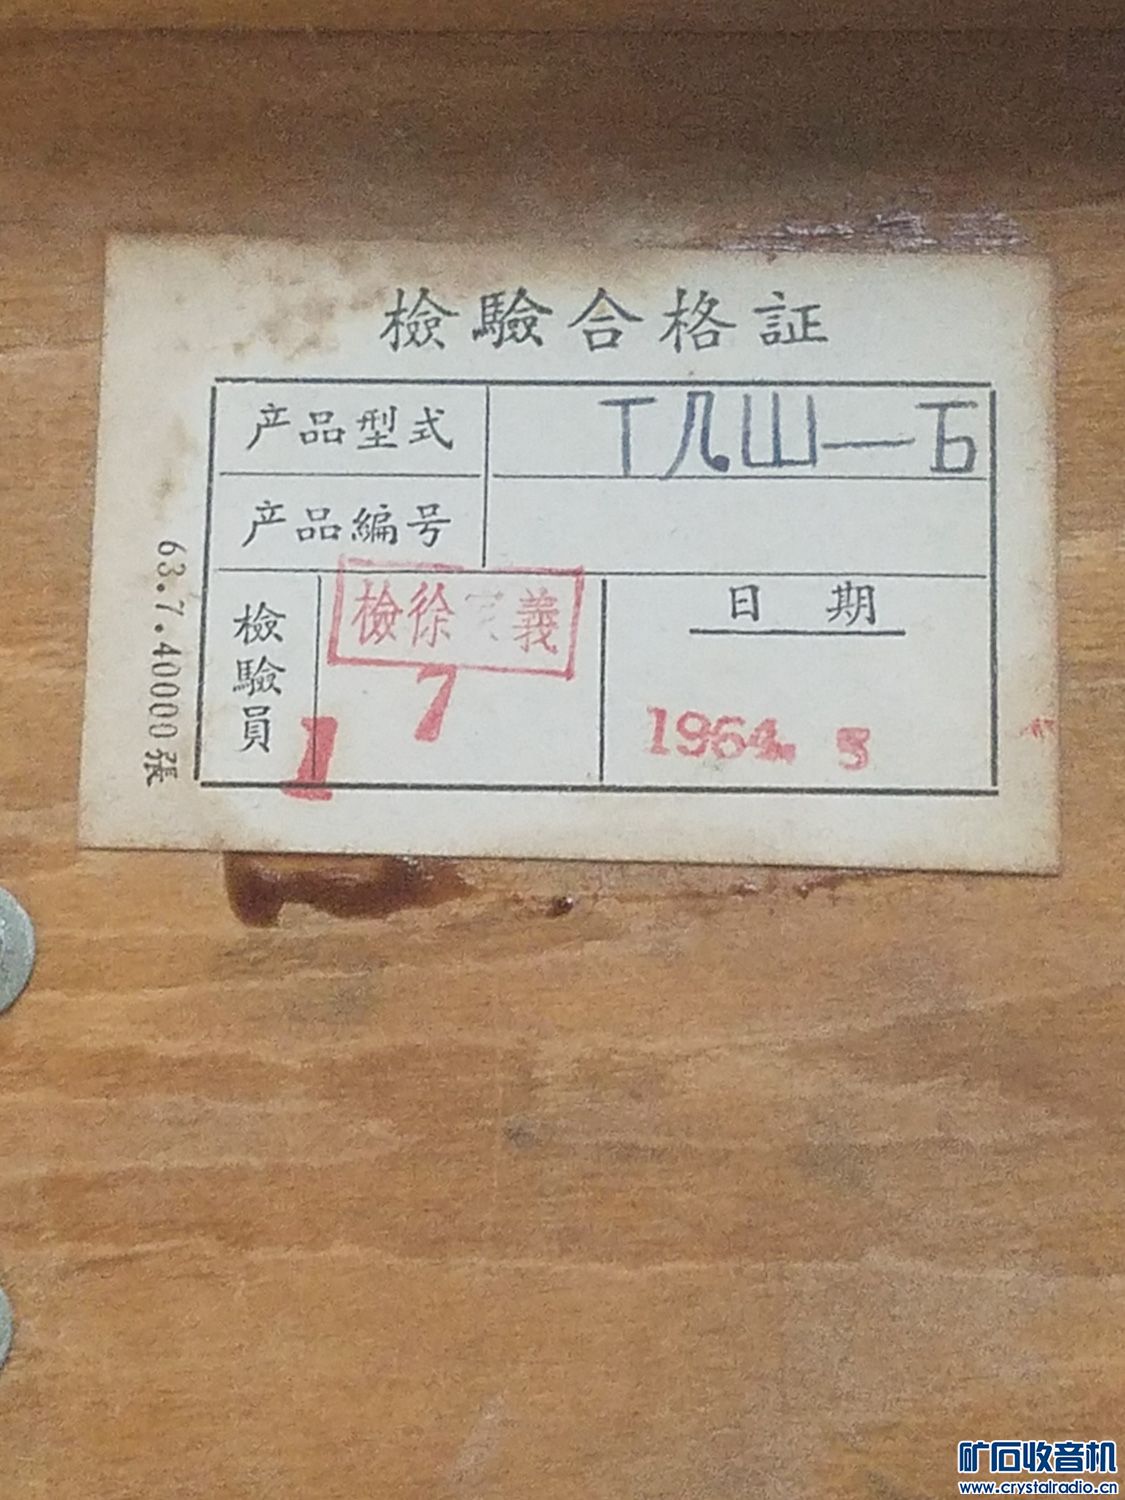 檢驗合格証
产品型式 ТЛШ—Б
产品編号
檢驗員
檢徐 義
7
1
日 期
1964. 5
63.7.40000張
矿石收音机
www.crystalradio.cn